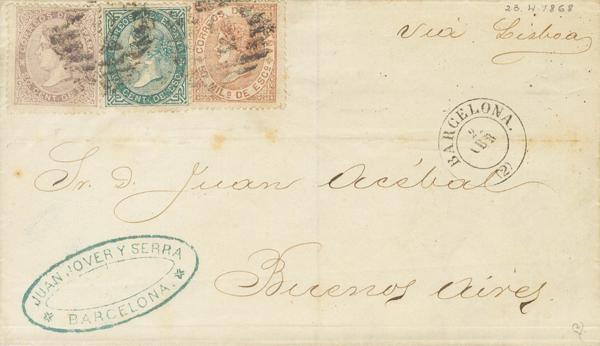 23.4.1868
Via Lisboa
CORREOS DE ESPAÑA
CENT. DE ESCO
CORREOS DE ESPAÑA
CENT. DE ESCO
CORREOS DE ESPAÑA
MILS DE ESCO
BARCELONA.
2
ABR
(2)
Sr. D. Juan Acébal
JUAN JOVER Y SERRA
BARCELONA.
Buenos Aires.